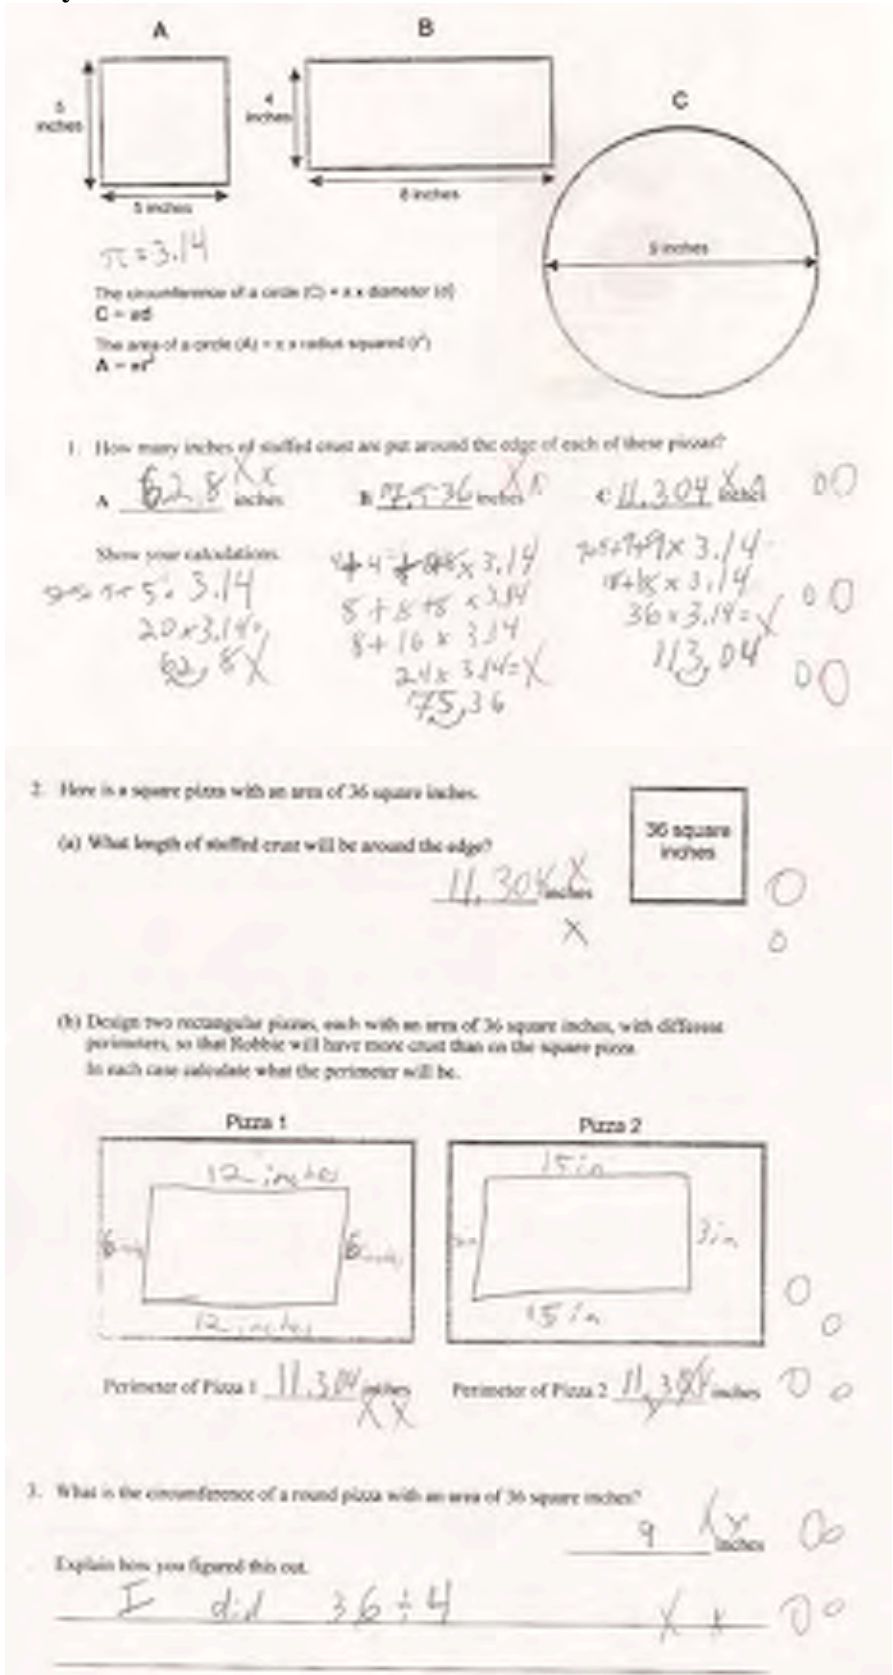 A
B
5
inches
4
inches
C
5 inches
8 inches
9 inches
π = 3.14
The circumference of a circle (C) = π x diameter (d)
C = πd
The area of a circle (A) = π x radius squared (r²)
A = πr²
1. How many inches of stuffed crust are put around the edge of each of these pizzas?
A 62.8 inches B 75.36 inches C 11.304 inches
Show your calculations.
5 . 3.14
20 x 3.14 =
62.8
x 3.14
8 + 8 + 8 x 3.14
8 + 16 x 3.14
24 x 3.14 =
75.36
9 x 3.14
18 + 18 x 3.14
36 x 3.14 =
113.04
2. Here is a square pizza with an area of 36 square inches.
(a) What length of stuffed crust will be around the edge?
36 square
inches
11.304 inches
(b) Design two rectangular pizzas, each with an area of 36 square inches, with different
perimeters, so that Robbie will have more crust than on the square pizza.
In each case calculate what the perimeter will be.
Pizza 1
Pizza 2
12 inches
6 inches
6 inches
12 inches
15 in
3 in
15 in
Perimeter of Pizza 1 11.304 inches
Perimeter of Pizza 2 11.304 inches
3. What is the circumference of a round pizza with an area of 36 square inches?
9 inches
Explain how you figured this out.
I did 36 ÷ 4